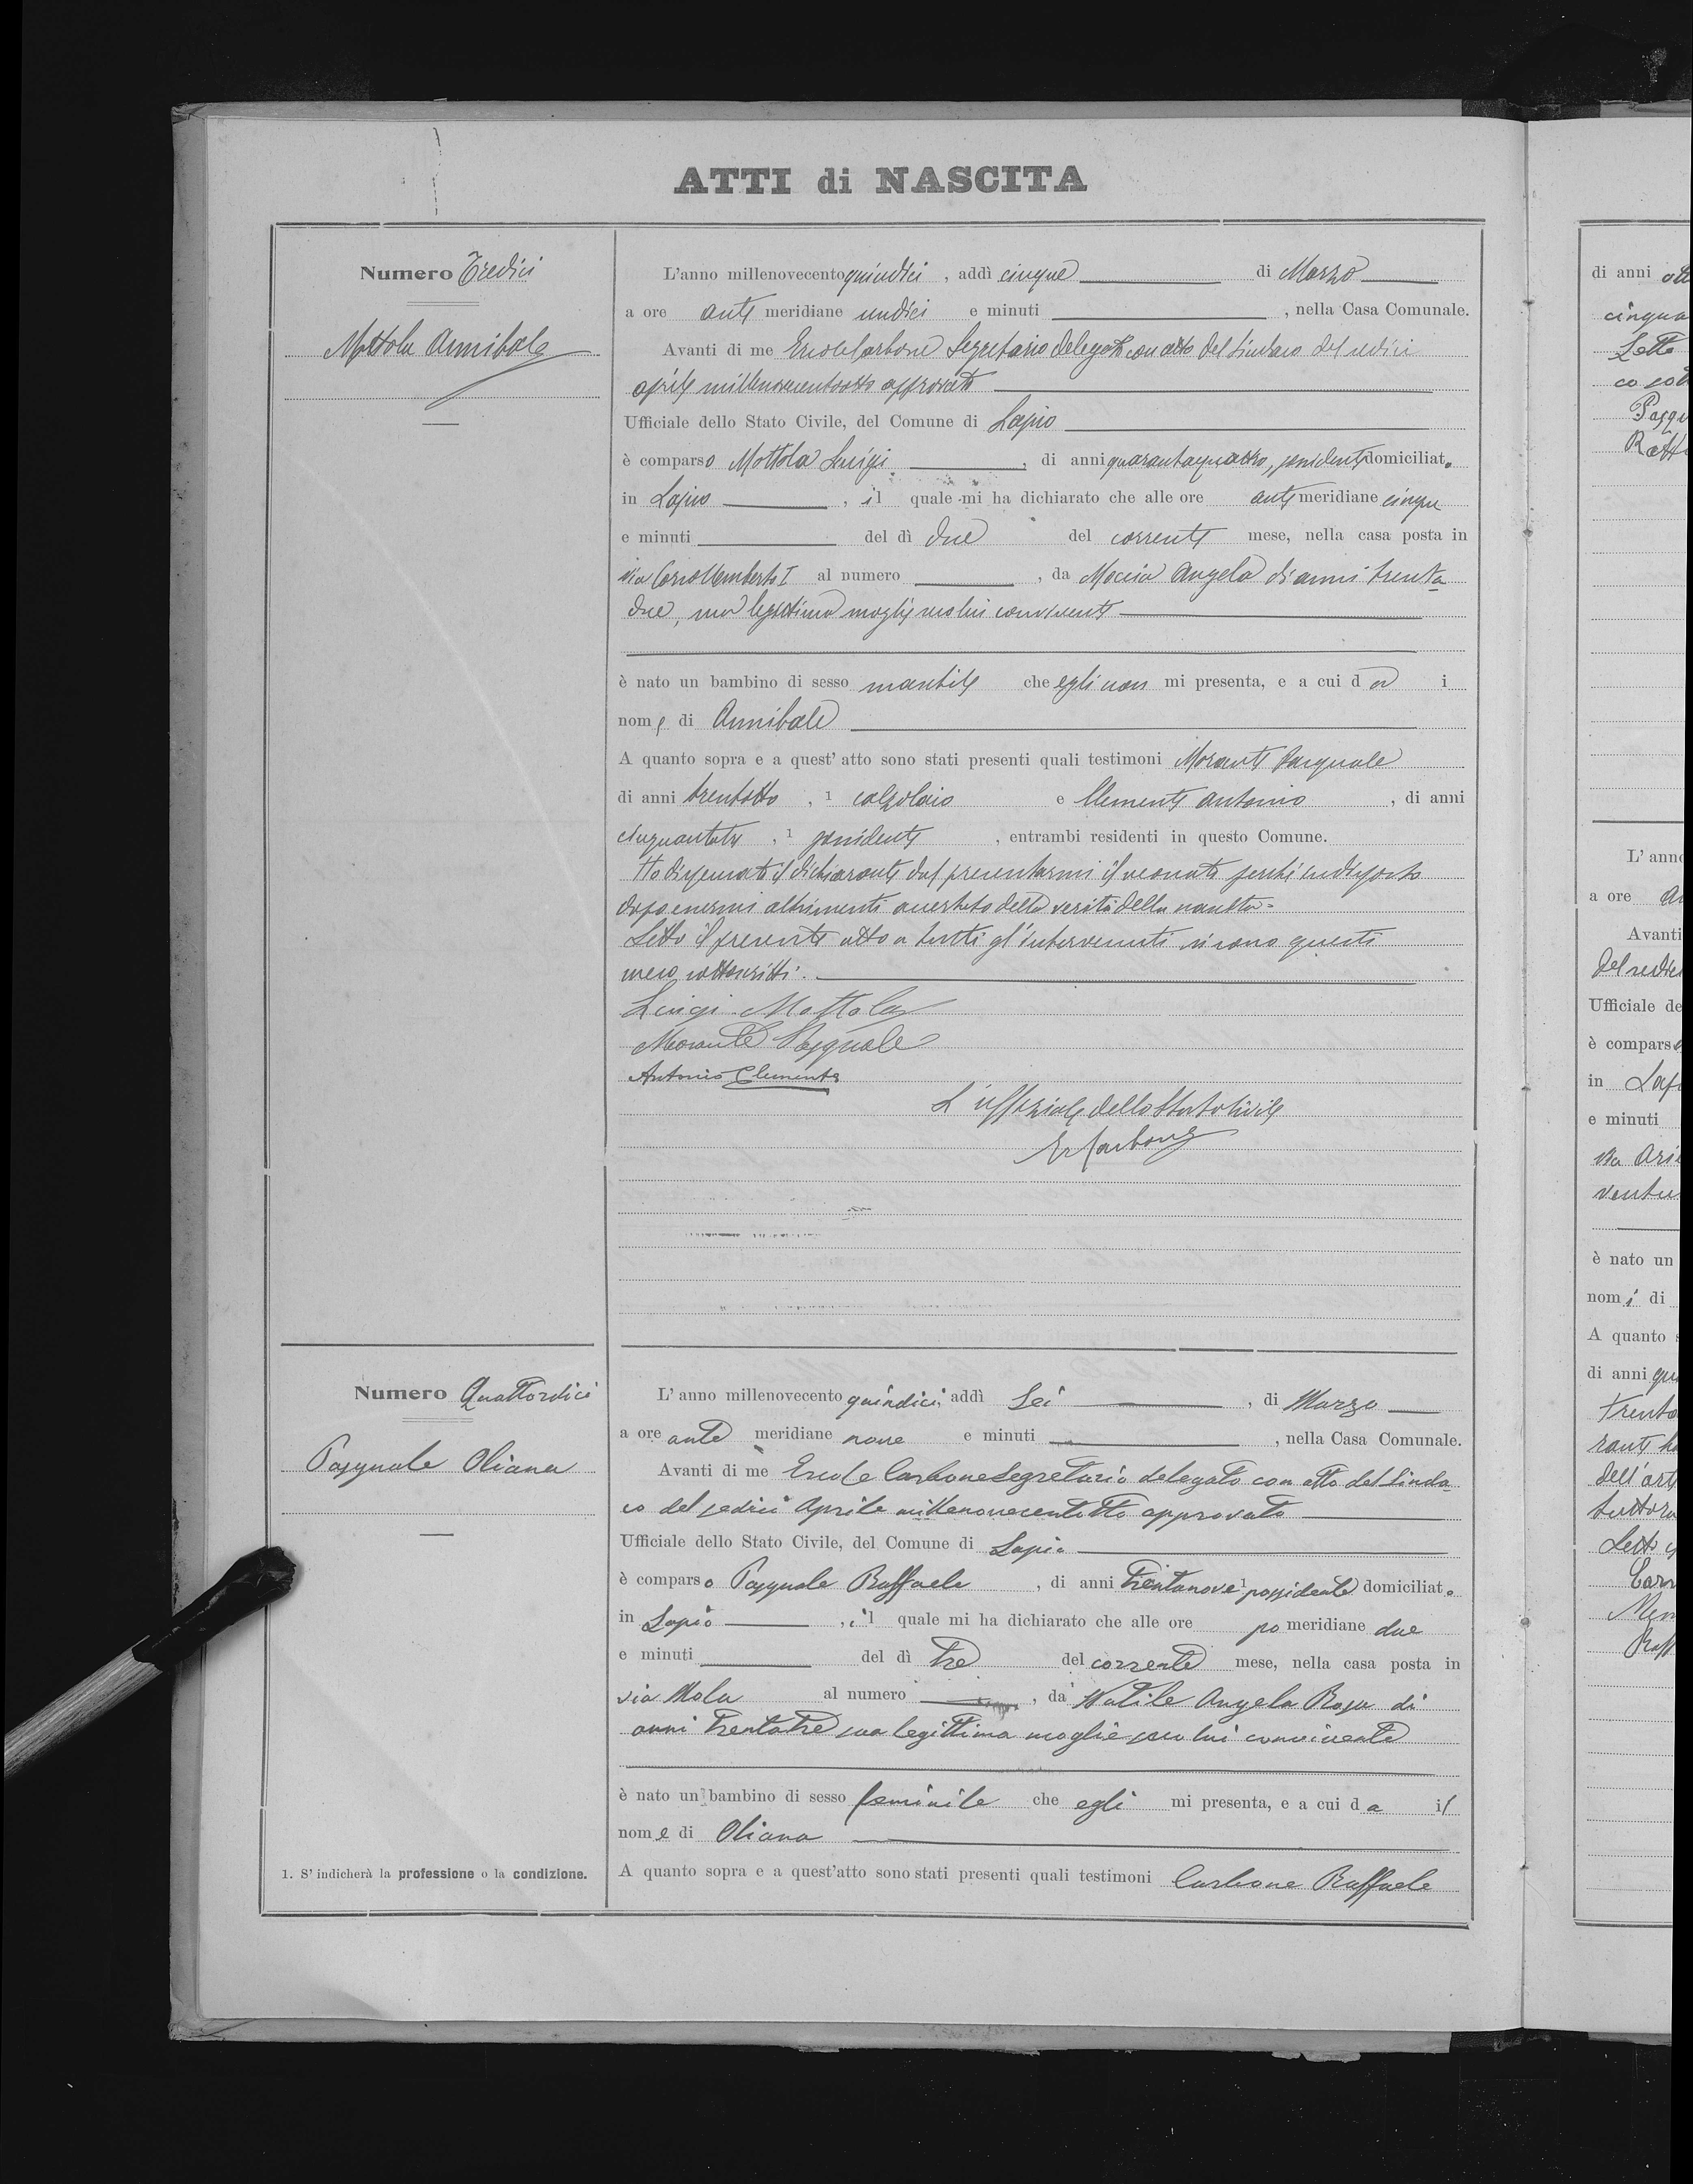 ATTI di NASCITA
Numero Tredici
Mottola Annibale
L'anno millenovecento quindici, addì cinque di Marzo
a ore ante meridiane undici e minuti , nella Casa Comunale.
Avanti di me Ercole Carbone Segretario delegato con atto del Sindaco del sedici
aprile millenovecentootto approvato
Ufficiale dello Stato Civile, del Comune di Lapio
è comparso Mottola Luigi , di anni quarantaquattro, possidente domiciliato
in Lapio , il quale mi ha dichiarato che alle ore ante meridiane cinque
e minuti del dì due del corrente mese, nella casa posta in
via Corso Umberto I al numero , da Moccia Angela di anni trenta
due, sua legittima moglie seco lui convivente
è nato un bambino di sesso maschile che egli non mi presenta, e a cui da i
nome di Annibale
A quanto sopra e a quest' atto sono stati presenti quali testimoni Morante Pasquale
di anni trentotto , 1 calzolaio e Clemente Antonio , di anni
cinquantatre , 1 possidente , entrambi residenti in questo Comune.
Ho dispensato il dichiarante dal presentarmi il neonato perchè indisposto
dopo essermi altrimenti accertato della verità della nascita =
Letto il presente atto a tutti gl'intervenuti si sono questi
meco sottoscritti.
Luigi Mottola
Morante Pasquale
Antonio Clemente
L'uffiziale dello Stato Civile
Er Carbone
Numero Quattordici
Pasquale Oliana
1. S' indicherà la professione o la condizione.
L' anno millenovecento quindici, addì Sei , di Marzo
a ore ante meridiane nove e minuti , nella Casa Comunale.
Avanti di me Ercole Carbone Segretario delegato con atto del Sinda
co del sedici Aprile millenovecentotto approvato
Ufficiale dello Stato Civile, del Comune di Lapio
è comparso Pasquale Raffaele , di anni trentanove 1 possidente domiciliato
in Lapio , il quale mi ha dichiarato che alle ore po meridiane due
e minuti del dì tre del corrente mese, nella casa posta in
via Mola al numero , da Natile Angela Rosa di
anni trentatre sua legittima moglie seco lui convivente
è nato un bambino di sesso feminile che egli mi presenta, e a cui da il
nome di Oliana
A quanto sopra e a quest'atto sono stati presenti quali testimoni Carbone Raffaele
di anni
cinqua
Letto
L' anno
a ore
Avanti
Del sedici
Ufficiale de
è comparso
in
e minuti
via
è nato un
nomi di
A quanto
di anni